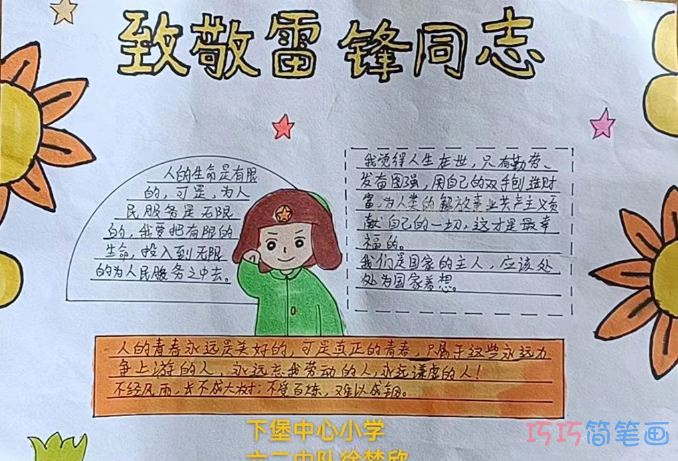 致敬雷锋同志
人的生命是有限
的，可是，为人
民服务是无限
的，我要把有限的
生命，投入到无限
的为人民服务之中去。
我觉得人生在世，只有勤劳、
发奋图强，用自己的双手创造财
富，为人类的解放事业共产主义贡
献自己的一切，这才是最幸
福的。
我们是国家的主人，应该处
处为国家着想。
人的青春永远是美好的，可是真正的青春，只属于这些永远力
争上游的人，永远忘我劳动的人，永远谦虚的人！
不经风雨，长不成大树；不受百炼，难以成钢。
下堡中心小学
六二中队徐梦欣
巧巧简笔画